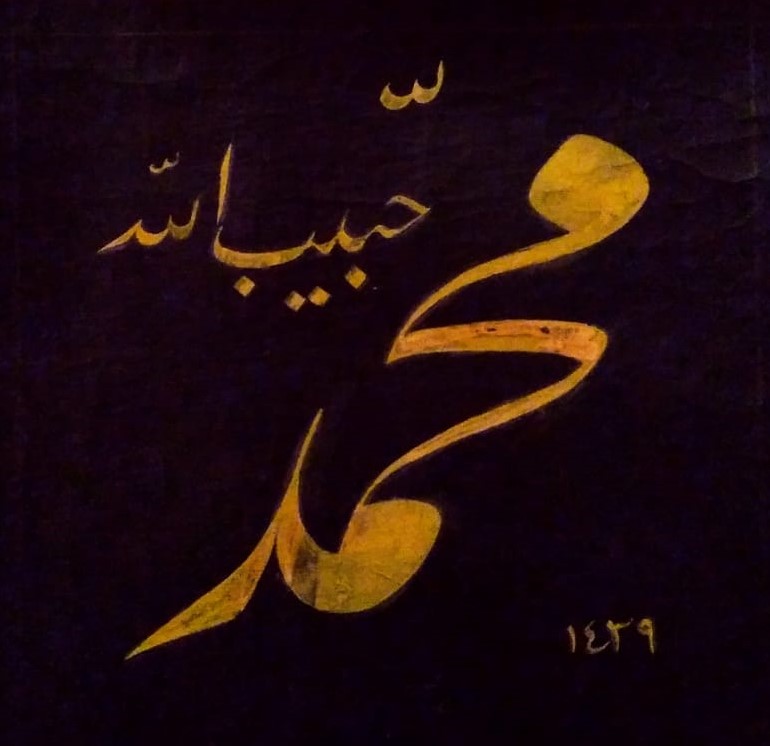 محمد
حبيب الله
١٤٣٩